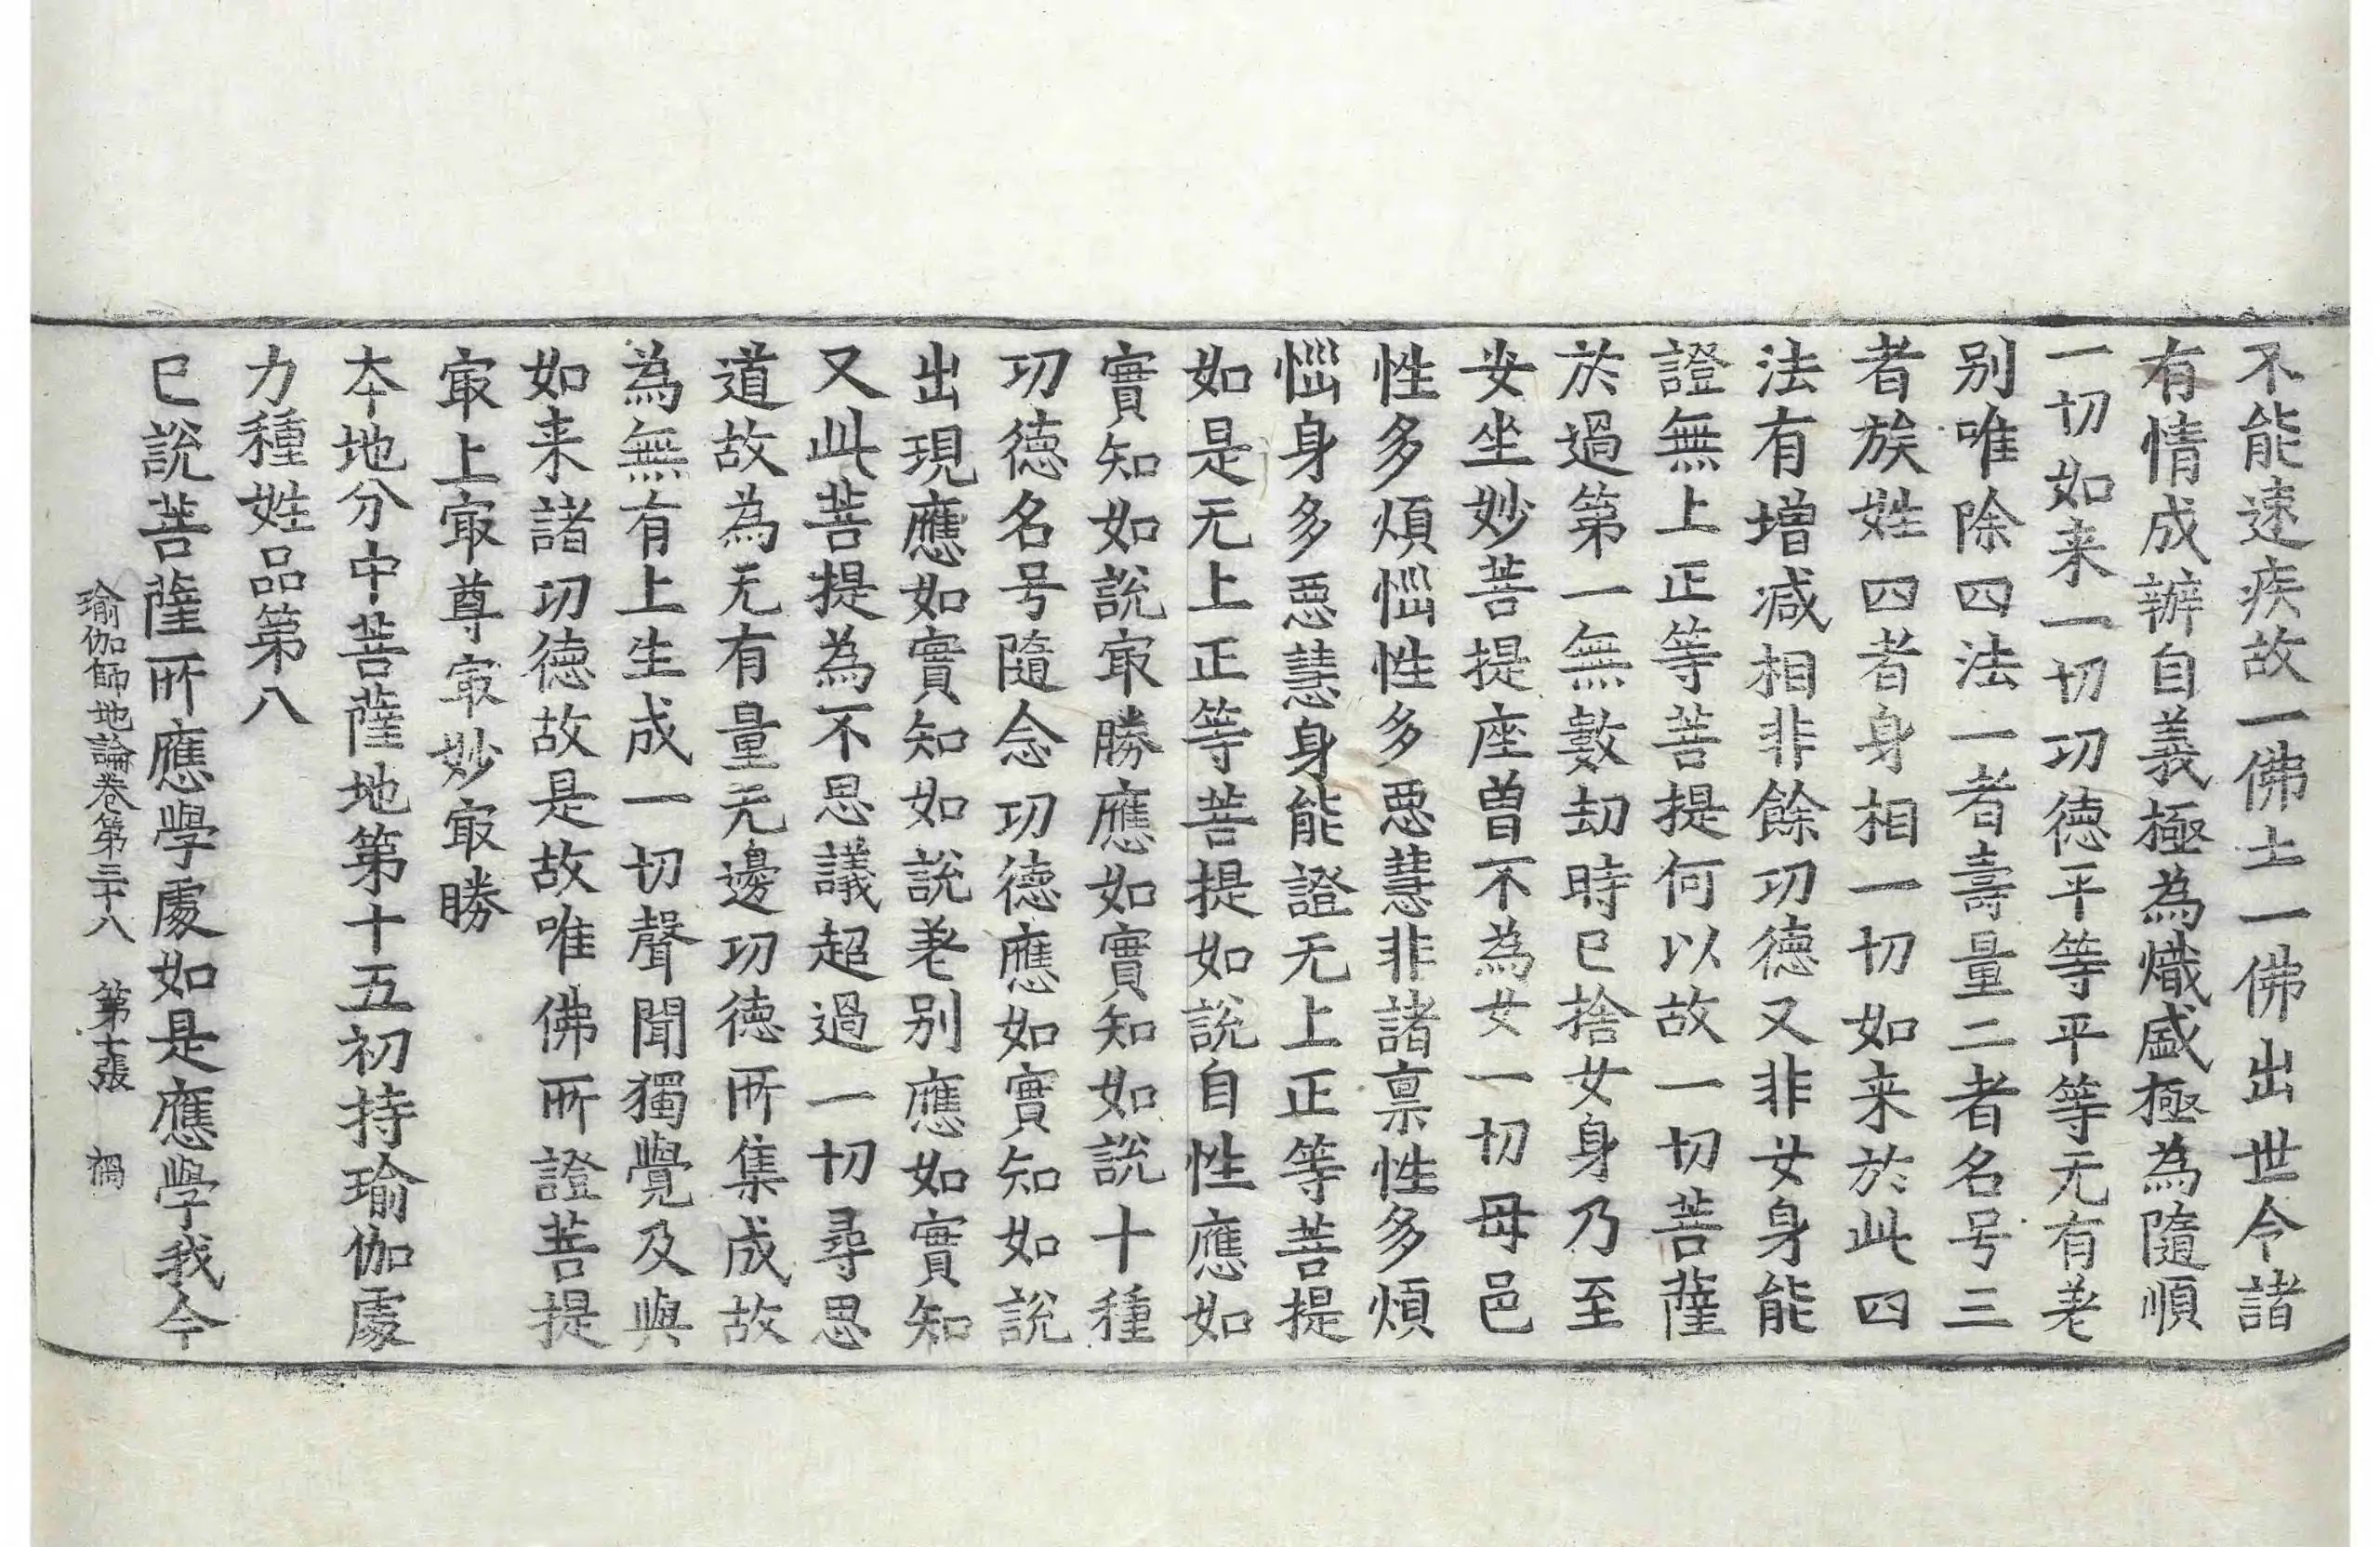 不能速疾故一佛土一佛出世令諸
有情成辦自義極為熾盛極為隨順
一切如来一切功德平等平等无有差
别唯除四法一者壽量二者名号三
者族姓四者身相一切如来於此四
法有增减相非餘功德又非女身能
證無上正等菩提何以故一切菩薩
於過第一無數劫時已捨女身乃至
安坐妙菩提座曾不為女一切母邑
性多煩惱性多惡慧非諸禀性多煩
惱身多惡慧身能證无上正等菩提
如是无上正等菩提如說自性應如
實知如說㝡勝應如實知如說十種
功德名号隨念功德應如實知如說
出現應如實知如說差别應如實知
又此菩提為不思議超過一切尋思
道故為无有量无邊功德所集成故
為無有上生成一切聲聞獨覺及與
如来諸功德故是故唯佛所證菩提
㝡上㝡尊㝡妙㝡勝
本地分中菩薩地第十五初持瑜伽處
力種姓品第八
已說菩薩所應學處如是應學我今
瑜伽師地論卷第三十八 第十張 禍